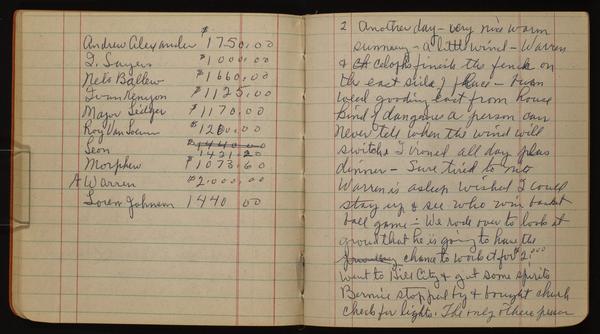 $
Andrew Alexander 1750.00
I. Sayers $1000.00
Nels Ballew $1660.00
Ivan Kenyon $1125.00
Major Seidger $1170.00
Roy Van $1200.00
Leon $1440.00
1421.20
Morphew $1073.60
A Warren $2,000.00
Loren Johnson 1440 00
2 Another day - very nice warm
sunny - a little wind - Warren
& finish the fence on
the east side of place - burn
weed east from house
kind of dangerous a person can
never tell when the wind will
switch. I ironed all day plus
dinner - Sure tired to nite
Warren is asleep wished I could
stay up & see who won basket
ball game - We rode over to look at
ground that he is going to have the
chance to work it for $2.00
went to Hill City & got some spirits
Bernie stopped by & brought church
check for lights. The only other person